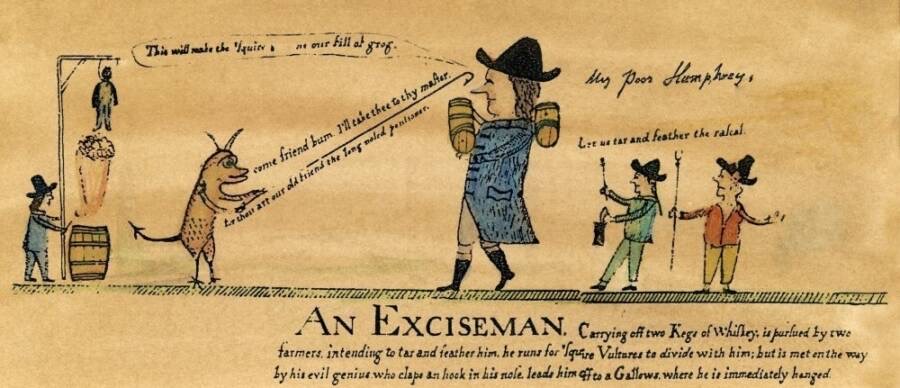 This will make the 'Squire our fill of grog.
My poor Humphrey,
come friend bum. I'll take thee to thy master.
thou art our old friend the long nosed
Let us tar and feather the rascal.
AN EXCISEMAN, Carrying off two Kegs of Whiskey, is pursued by two
farmers, intending to tar and feather him, he runs for 'Squire Vultures to divide with him; but is met on the way
by his evil genius who claps an hook in his nose, leads him off to a Gallows, where he is immediately hanged